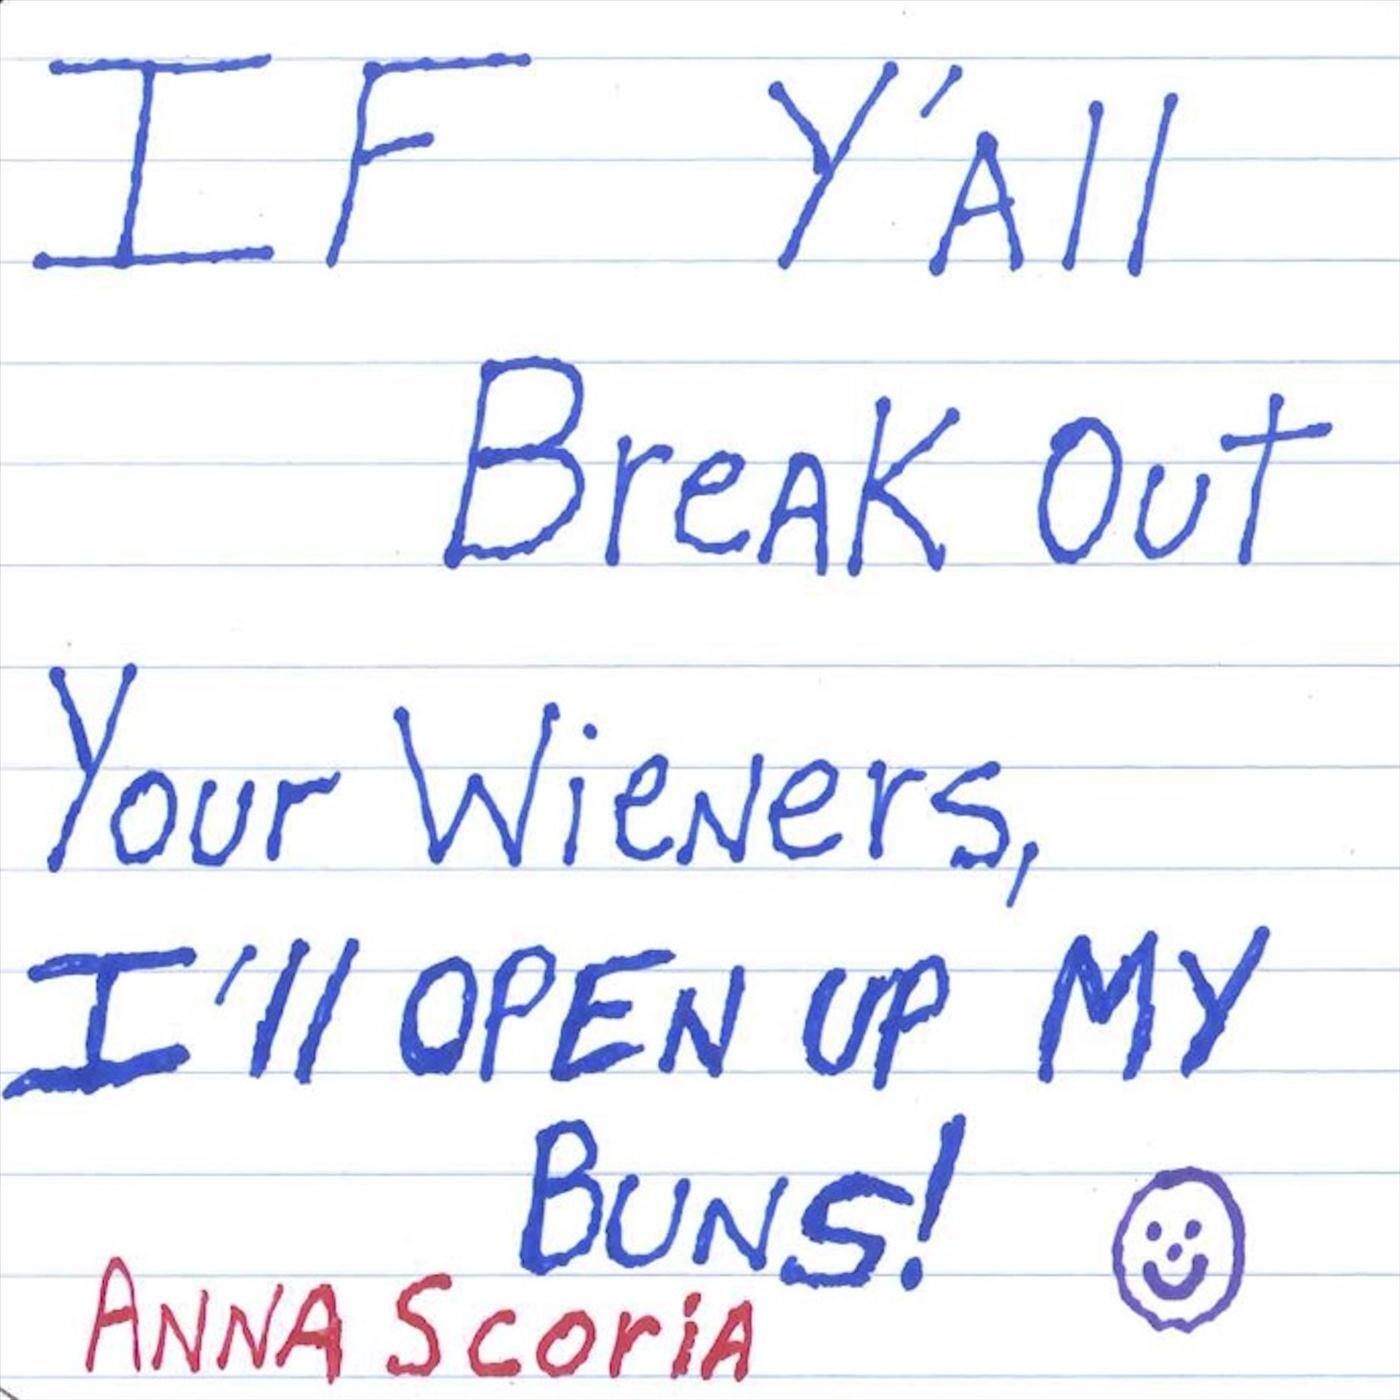 IF Y'All
BreAK Out
Your WieNers,
I'll OPEN UP MY
BUNS!
ANNA ScoriA